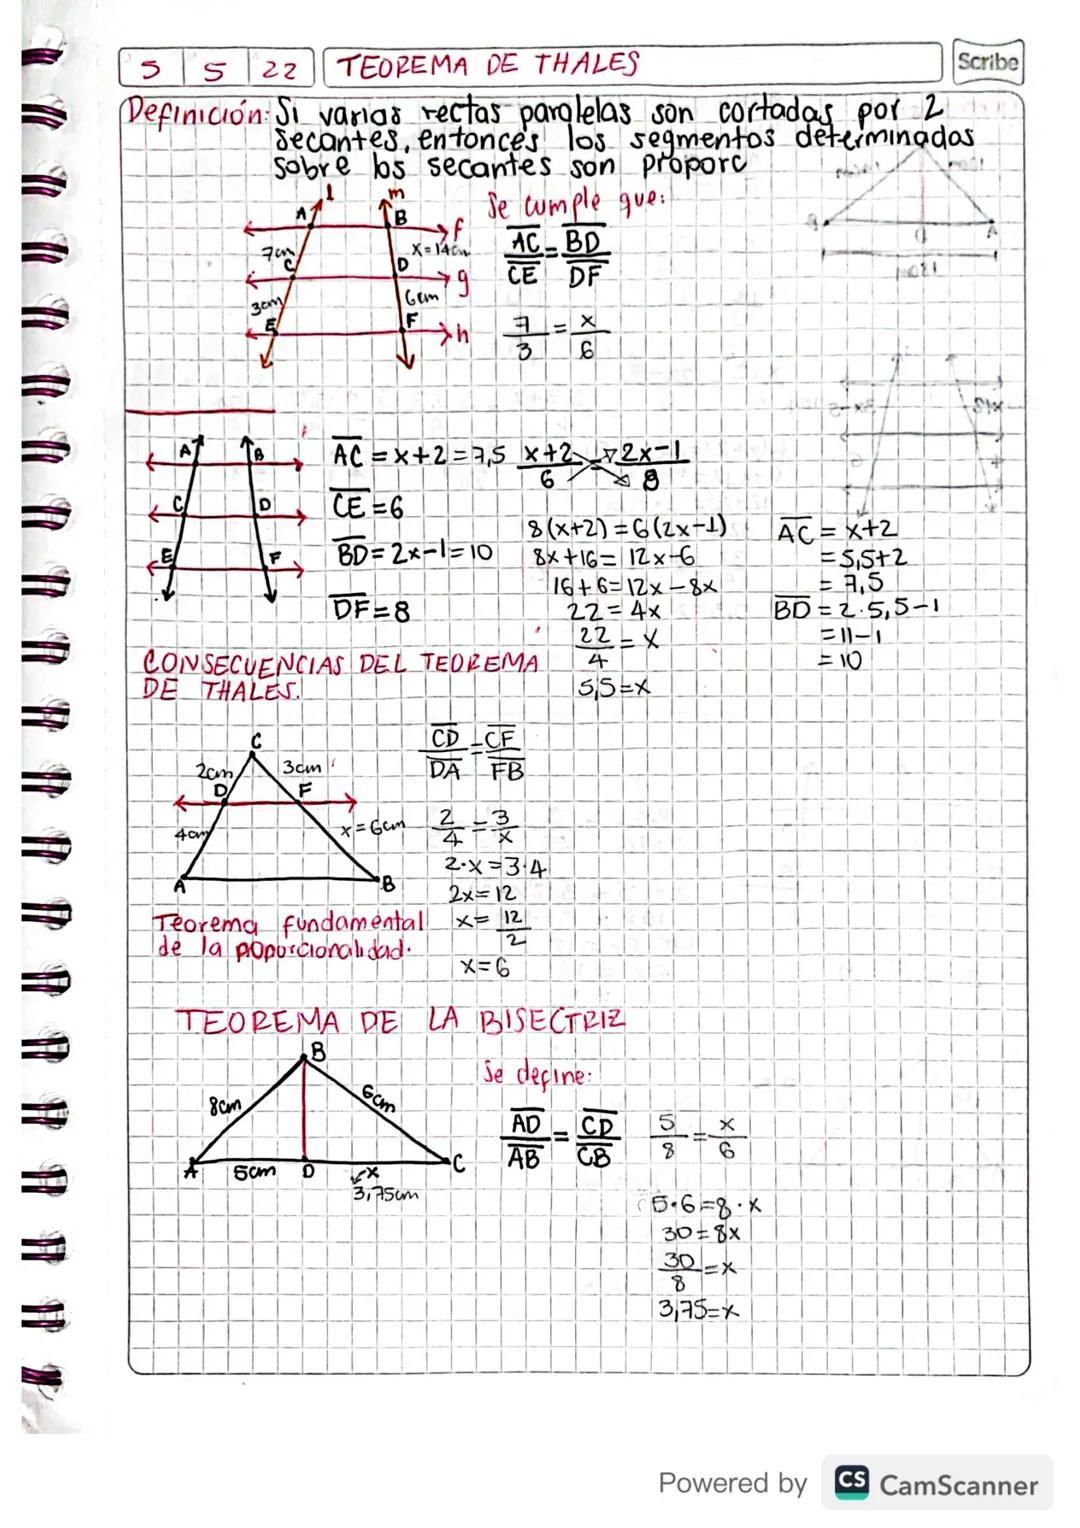 5 5 22 TEOREMA DE THALES
Scribe
Definición: Si varias rectas paralelas son cortadas por 2
secantes, entonces los segmentos determinados
sobre los secantes son proporc
l m
Se cumple que:
A B f
7cm x=14cm
C D g
3cm 6cm
E F h
AC/CE = BD/DF
7/3 = x/6
A B
C D
E F
AC = x+2 = 7,5
CE = 6
BD = 2x-1 = 10
DF = 8
x+2/6 = 2x-1/8
8(x+2) = 6(2x-1)
8x+16 = 12x-6
16+6 = 12x-8x
22 = 4x
22/4 = x
5,5 = x
AC = x+2
= 5,5+2
= 7,5
BD = 2·5,5-1
= 11-1
= 10
CONSECUENCIAS DEL TEOREMA
DE THALES.
C
2cm 3cm
D F
4cm x=6cm
A B
CD/DA = CF/FB
2/4 = 3/x
2·x = 3·4
2x = 12
x = 12/2
x = 6
Teorema fundamental
de la poporcionalidad.
TEOREMA DE LA BISECTRIZ
B
8cm 6cm
A 5cm D x C
3,75cm
Se define:
AD/AB = CD/CB
5/8 = x/6
5·6 = 8·x
30 = 8x
30/8 = x
3,75 = x
Powered by CS CamScanner